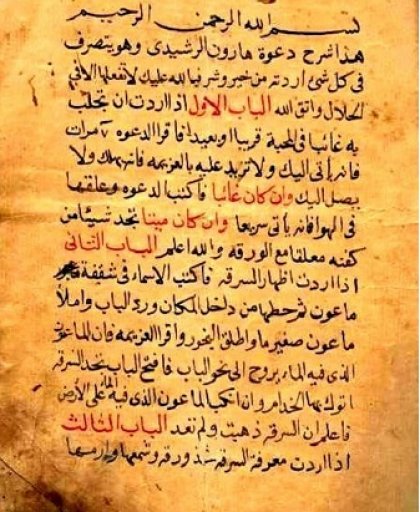 بسم الله الرحمن الرحيم
هذا شرح دعوة هارون الرشيدى وهو يتصرف
فى كل شئ اردته من خير وشر فيا لله عليك لا تفعلها الا فى
الحلال واتق الله الباب الاول اذا اردت ان تجلب
به غائبا فى المحبة قريبا او بعيدا فاقرا الدعوه مرات
فانه يأتى اليك ولا تزيد عليه بالعزيمه ولا
يصل اليك وان كان غائبا فاكتب الدعوه وعلقها
فى الهوا فانه يأتى سريعا وان كان ميتا تجد شيئا من
كفنه معلقا مع الورقه والله اعلم الباب الثانى
اذا اردت اظهار السرقه فاكتب الاسماء فى شقفة
ماعون ثم حطها من داخل المكان ورد الباب واملأ
ماعون صغير ما واطلق البخور واقرا العزيمه فان الماعون
الذى فيه الماء يروح الى نحو الباب فافتح الباب تجد السرقه
اتوك بها الخدام وان انكب الماعون الذى فيه الماء على الأرض
فاعلم ان السرقه ذهبت ولم تعد الباب الثالث
اذا اردت معرفة السرقه خذ ورقه وشمعها وارمها